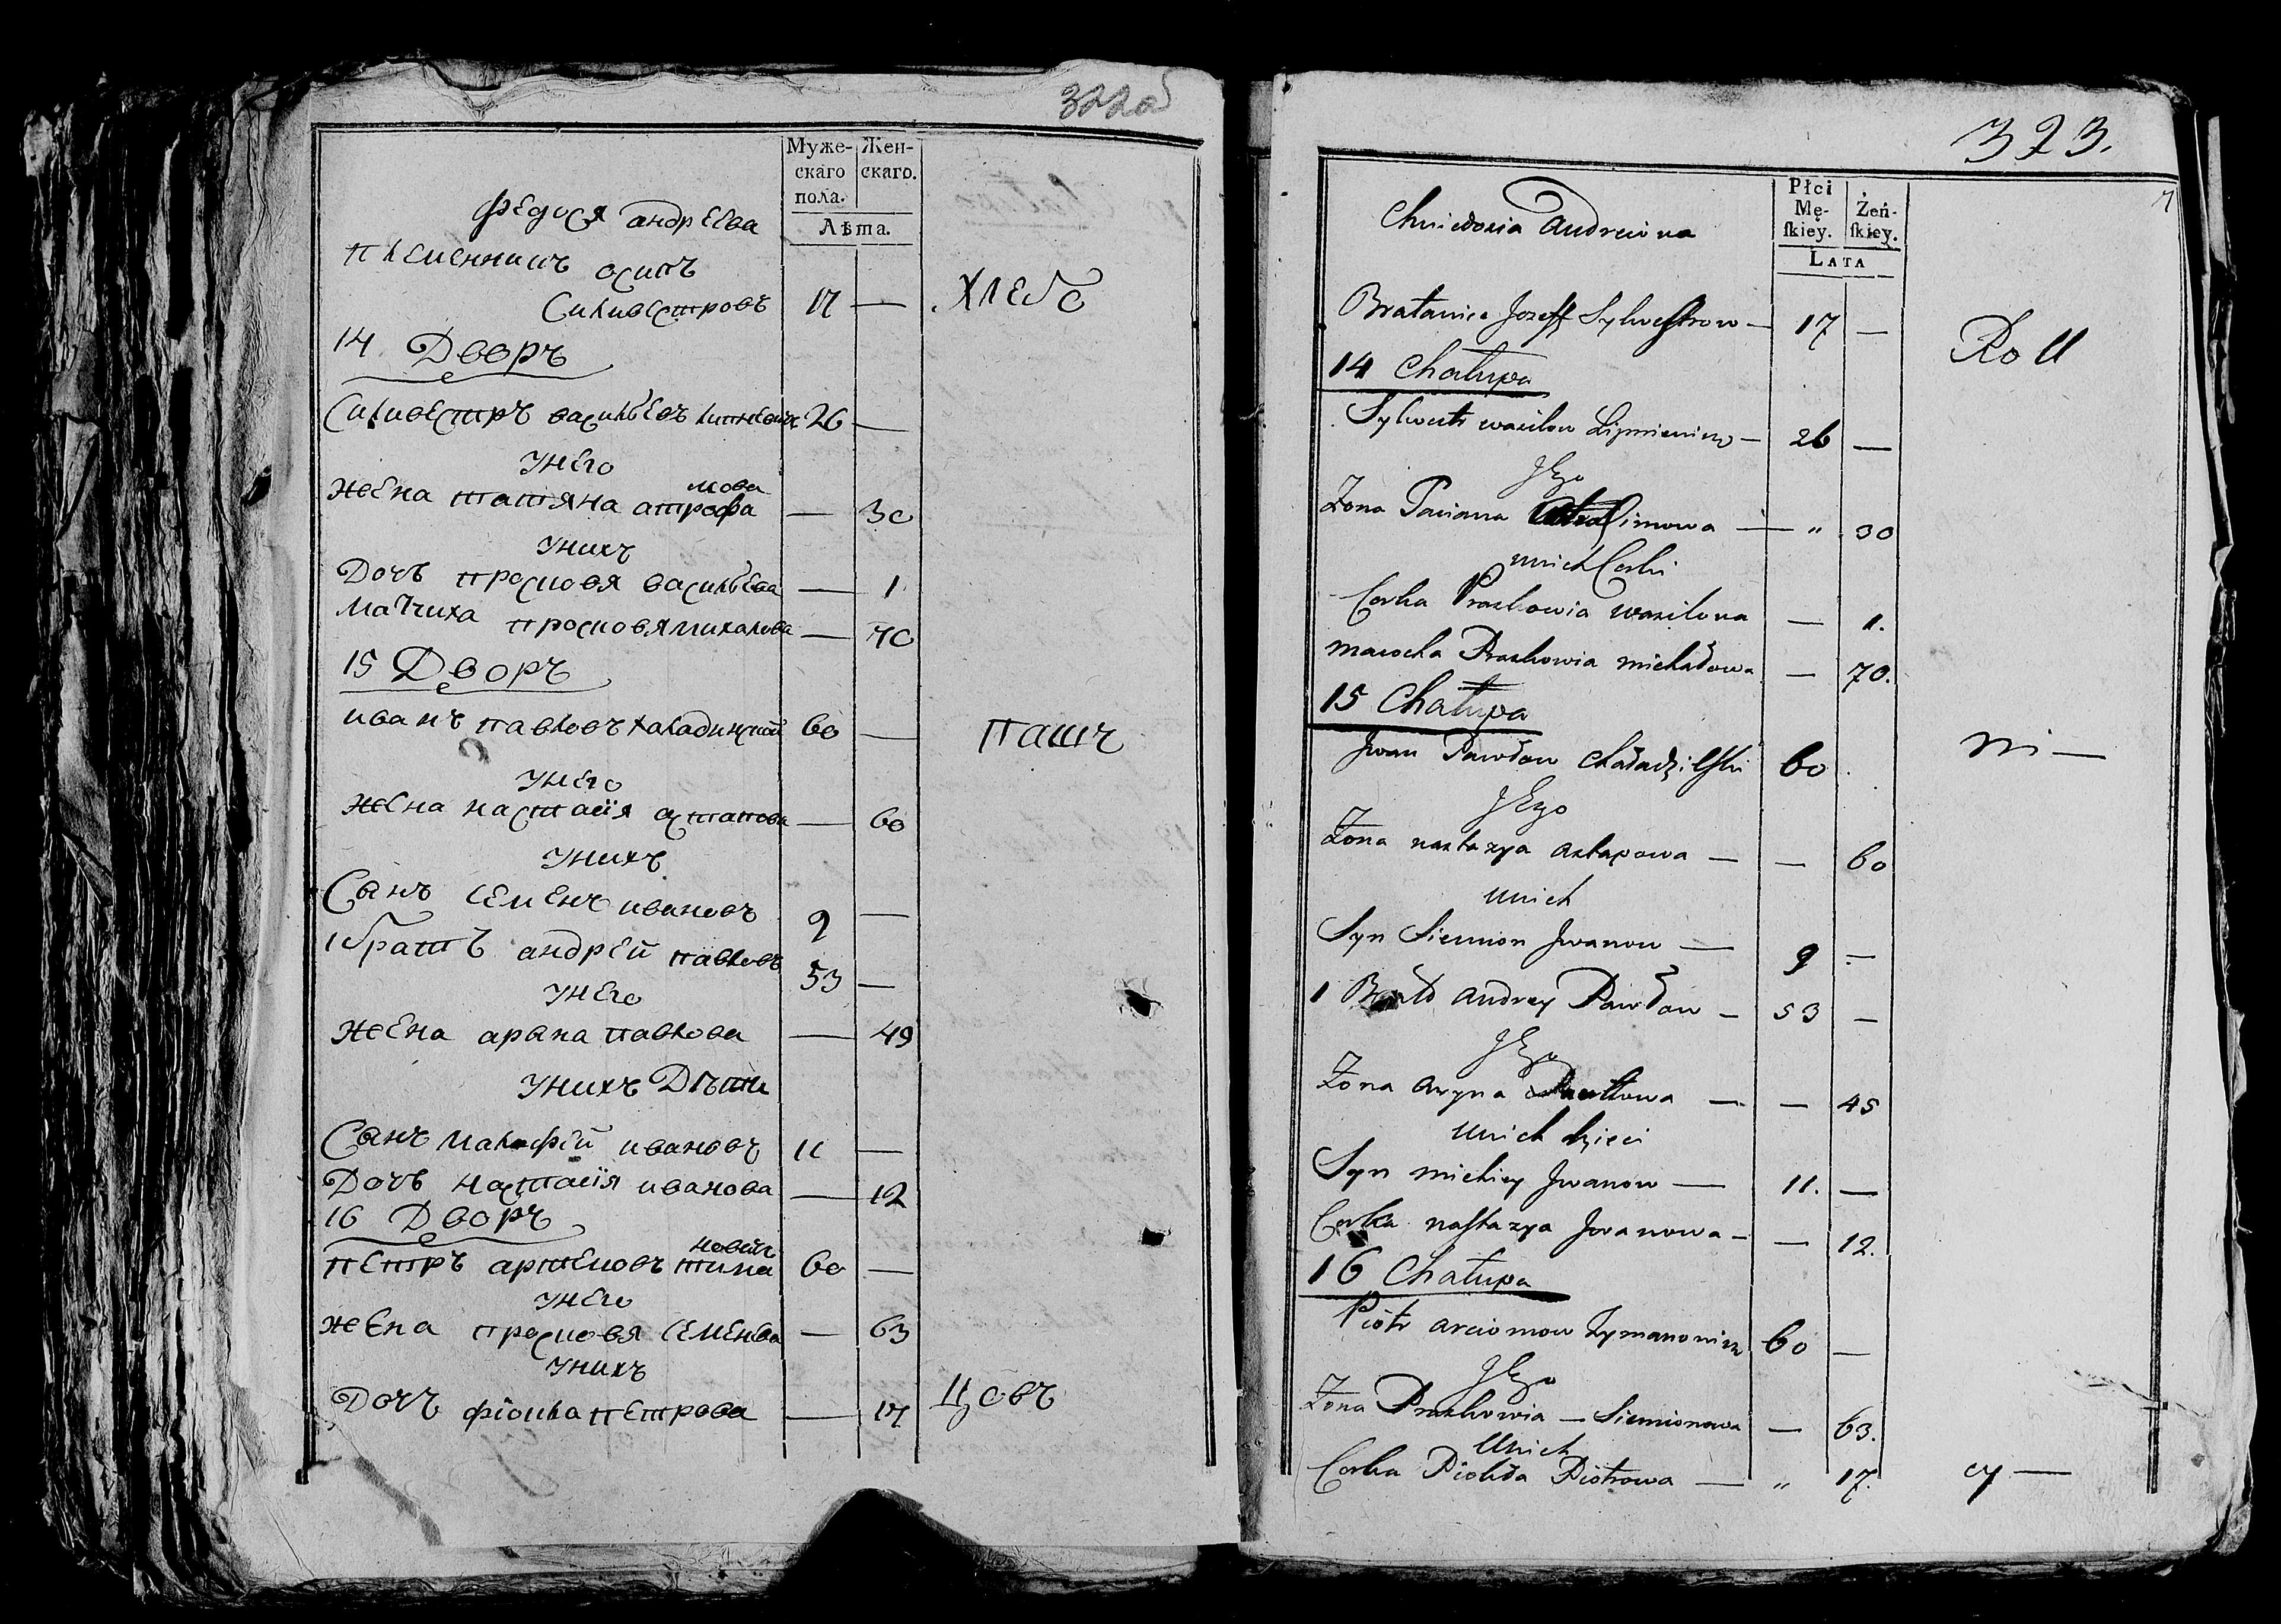 322об
Муже-
скаго
пола.
Жен-
скаго.
Лѣта.
Федося андреева
племенникъ осипъ
Силивестровъ 17 —
хлебо
14 Дворъ
Силивестръ васильевъ липневичъ 26 —
унего
жена татяна атрофимова — 30
унихъ
Дочъ просковя васильева — 1
мачиха просковя михалова — 70
15 Дворъ
иванъ павловъ халадинский 60 —
пашъ
унего
жена настасiя астапова — 60
унихъ
Сынъ семенъ ивановъ 9 —
1 братъ андрей павловъ 53 —
унего
жена арына павлова — 49
унихъ Дѣти
Сынъ ивановъ 11 —
Дочъ настасiя иванова — 12
16 Дворъ
петръ артемовъ тимановичъ 60 —
унего
жена просковя семенова — 63
унихъ
Дочъ фiокла петрова — 17
цовъ
323.
Płci
Mę-
ſkiey.
Żeń-
ſkiey.
Lata
Chwiedosia Andreiowa
Bratanic Jozeff Sylwestrow — 17 —
Roll
14 Chałupa
Sylwestr wasilow Lipniewicz — 26 —
Jego
Żona Taciana Atrafimowa — " 30
unich Corki
Corka Praskowia wasilowa — 1.
macocha Praskowia michałowa — 70.
15 Chałupa
Jwan Pawłow Chaładzilski 60
ni —
Jego
Żona nastazya astapowa — — 60
unich
Syn Siemion Jwanow — 9 —
1 Brat andrey Pawłow — 53 —
Jego
Żona aryna Pawłowa — — 45
unich dzieci
Syn michiey Jwanow — 11. —
Corka nastazya Jwanowa — — 12.
16 Chałupa
Piotr arciomow Tymanowicz 60 —
Jego
Żona Praskowia — Siemionowa — 63.
Unich
Corka Piokła Piotrowa — " 17.
cy —